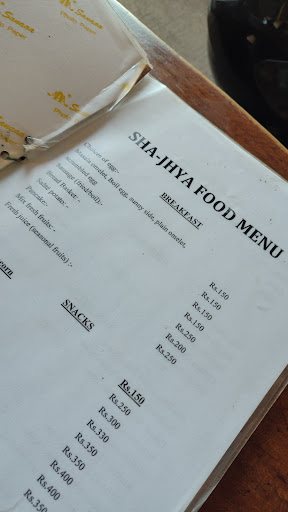 SHA-JHYA FOOD MENU
BREAKFAST
Choices of egg:-
Masala omelet, Boil egg, sunny side, plain omelet,
scrambled egg Rs.150
Sausage (fried/boil):- Rs.150
Bread Basket:- Rs.150
Saute potato:- Rs.250
Pancake:- Rs.200
Mix fresh fruits:- Rs.250
Fresh juice (seasonal fruits) :-
SNACKS
corn Rs.150
Rs.250
Rs.300
Rs.330
Rs.350
Rs.350
Rs.400
Rs.400
Rs.350